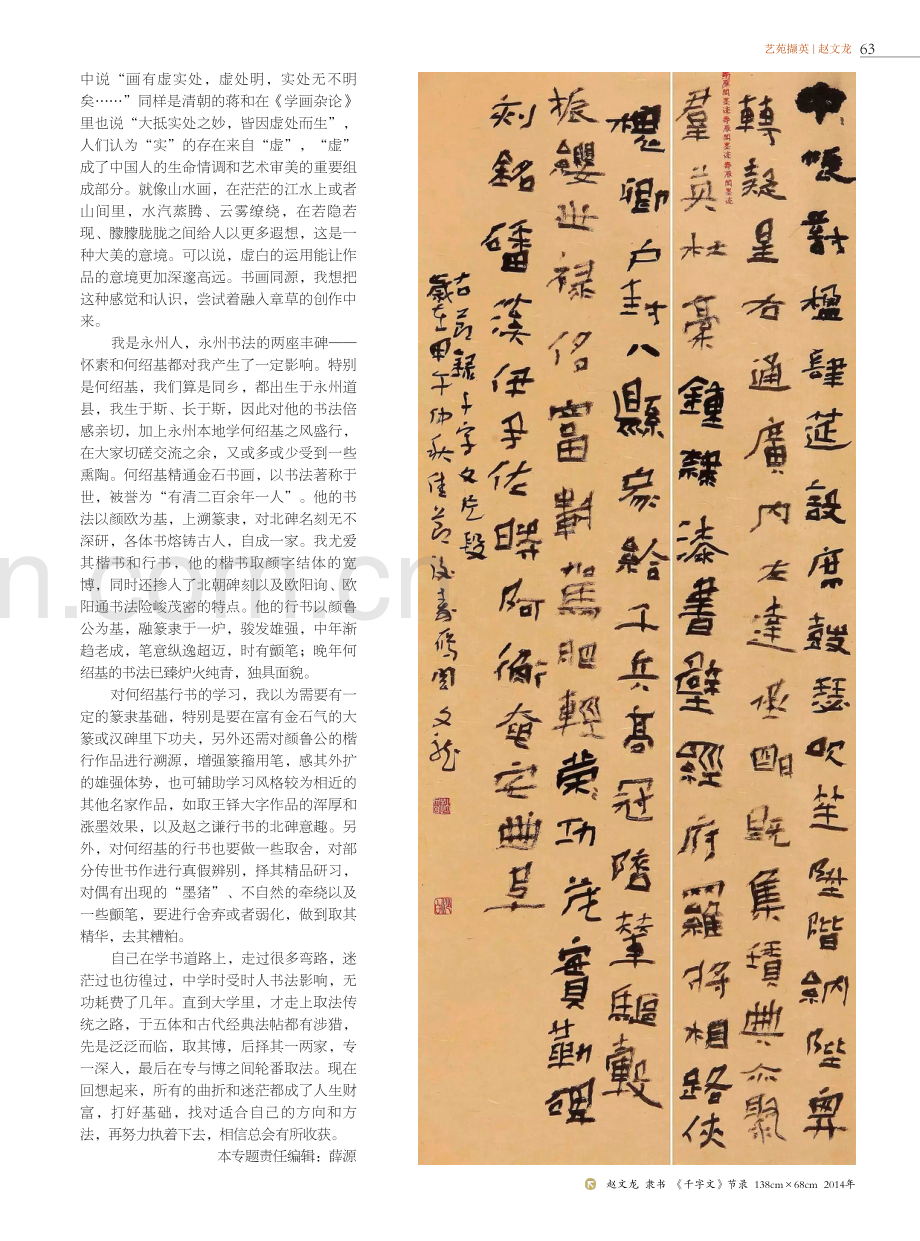 艺苑撷英 | 赵文龙 63
中说“画有虚实处，虚处明，实处无不明
矣……”同样是清朝的蒋和在《学画杂论》
里也说“大抵实处之妙，皆因虚处而生”，
人们认为“实”的存在来自“虚”，“虚”
成了中国人的生命情调和艺术审美的重要组
成部分。就像山水画，在茫茫的江水上或者
山间里，水汽蒸腾、云雾缭绕，在若隐若
现、朦朦胧胧之间给人以更多遐想，这是一
种大美的意境。可以说，虚白的运用能让作
品的意境更加深邃高远。书画同源，我想把
这种感觉和认识，尝试着融入章草的创作中
来。
我是永州人，永州书法的两座丰碑——
怀素和何绍基都对我产生了一定影响。特别
是何绍基，我们算是同乡，都出生于永州道
县，我生于斯、长于斯，因此对他的书法倍
感亲切，加上永州本地学何绍基之风盛行，
在大家切磋交流之余，又或多或少受到一些
熏陶。何绍基精通金石书画，以书法著称于
世，被誉为“有清二百余年一人”。他的书
法以颜欧为基，上溯篆隶，对北碑名刻无不
深研，各体书熔铸古人，自成一家。我尤爱
其楷书和行书，他的楷书取颜字结体的宽
博，同时还掺入了北朝碑刻以及欧阳询、欧
阳通书法险峻茂密的特点。他的行书以颜鲁
公为基，融篆隶于一炉，骏发雄强，中年渐
趋老成，笔意纵逸超迈，时有颤笔；晚年何
绍基的书法已臻炉火纯青，独具面貌。
对何绍基行书的学习，我以为需要有一
定的篆隶基础，特别是要在富有金石气的大
篆或汉碑里下功夫，另外还需对颜鲁公的楷
行作品进行溯源，增强篆籀用笔，感其外扩
的雄强体势，也可辅助学习风格较为相近的
其他名家作品，如取王铎大字作品的浑厚和
涨墨效果，以及赵之谦行书的北碑意趣。另
外，对何绍基的行书也要做一些取舍，对部
分传世书作进行真假辨别，择其精品研习，
对偶有出现的“墨猪”、不自然的牵绕以及
一些颤笔，要进行舍弃或者弱化，做到取其
精华，去其糟粕。
自己在学书道路上，走过很多弯路，迷
茫过也彷徨过，中学时受时人书法影响，无
功耗费了几年。直到大学里，才走上取法传
统之路，于五体和古代经典法帖都有涉猎，
先是泛泛而临，取其博，后择其一两家，专
一深入，最后在专与博之间轮番取法。现在
回想起来，所有的曲折和迷茫都成了人生财
富，打好基础，找对适合自己的方向和方
法，再努力执着下去，相信总会有所收获。
本专题责任编辑：薛源
甲帳對楹肆筵設席鼓瑟吹笙陞階納陛弁
轉疑星右通廣内左達承明既集墳典亦聚
羣英杜稾鍾隸漆書壁經府羅將相路俠
槐卿户封八縣家給千兵高冠陪輦驅轂
振纓世禄侈富車駕肥輕策功茂實勒碑
刻銘磻溪伊尹佐時阿衡奄宅曲阜
節録千字文片段
歲在甲午仲秋佳節 文龍
赵文龙 隶书 《千字文》节录 138cm×68cm 2014年
n.com.cn